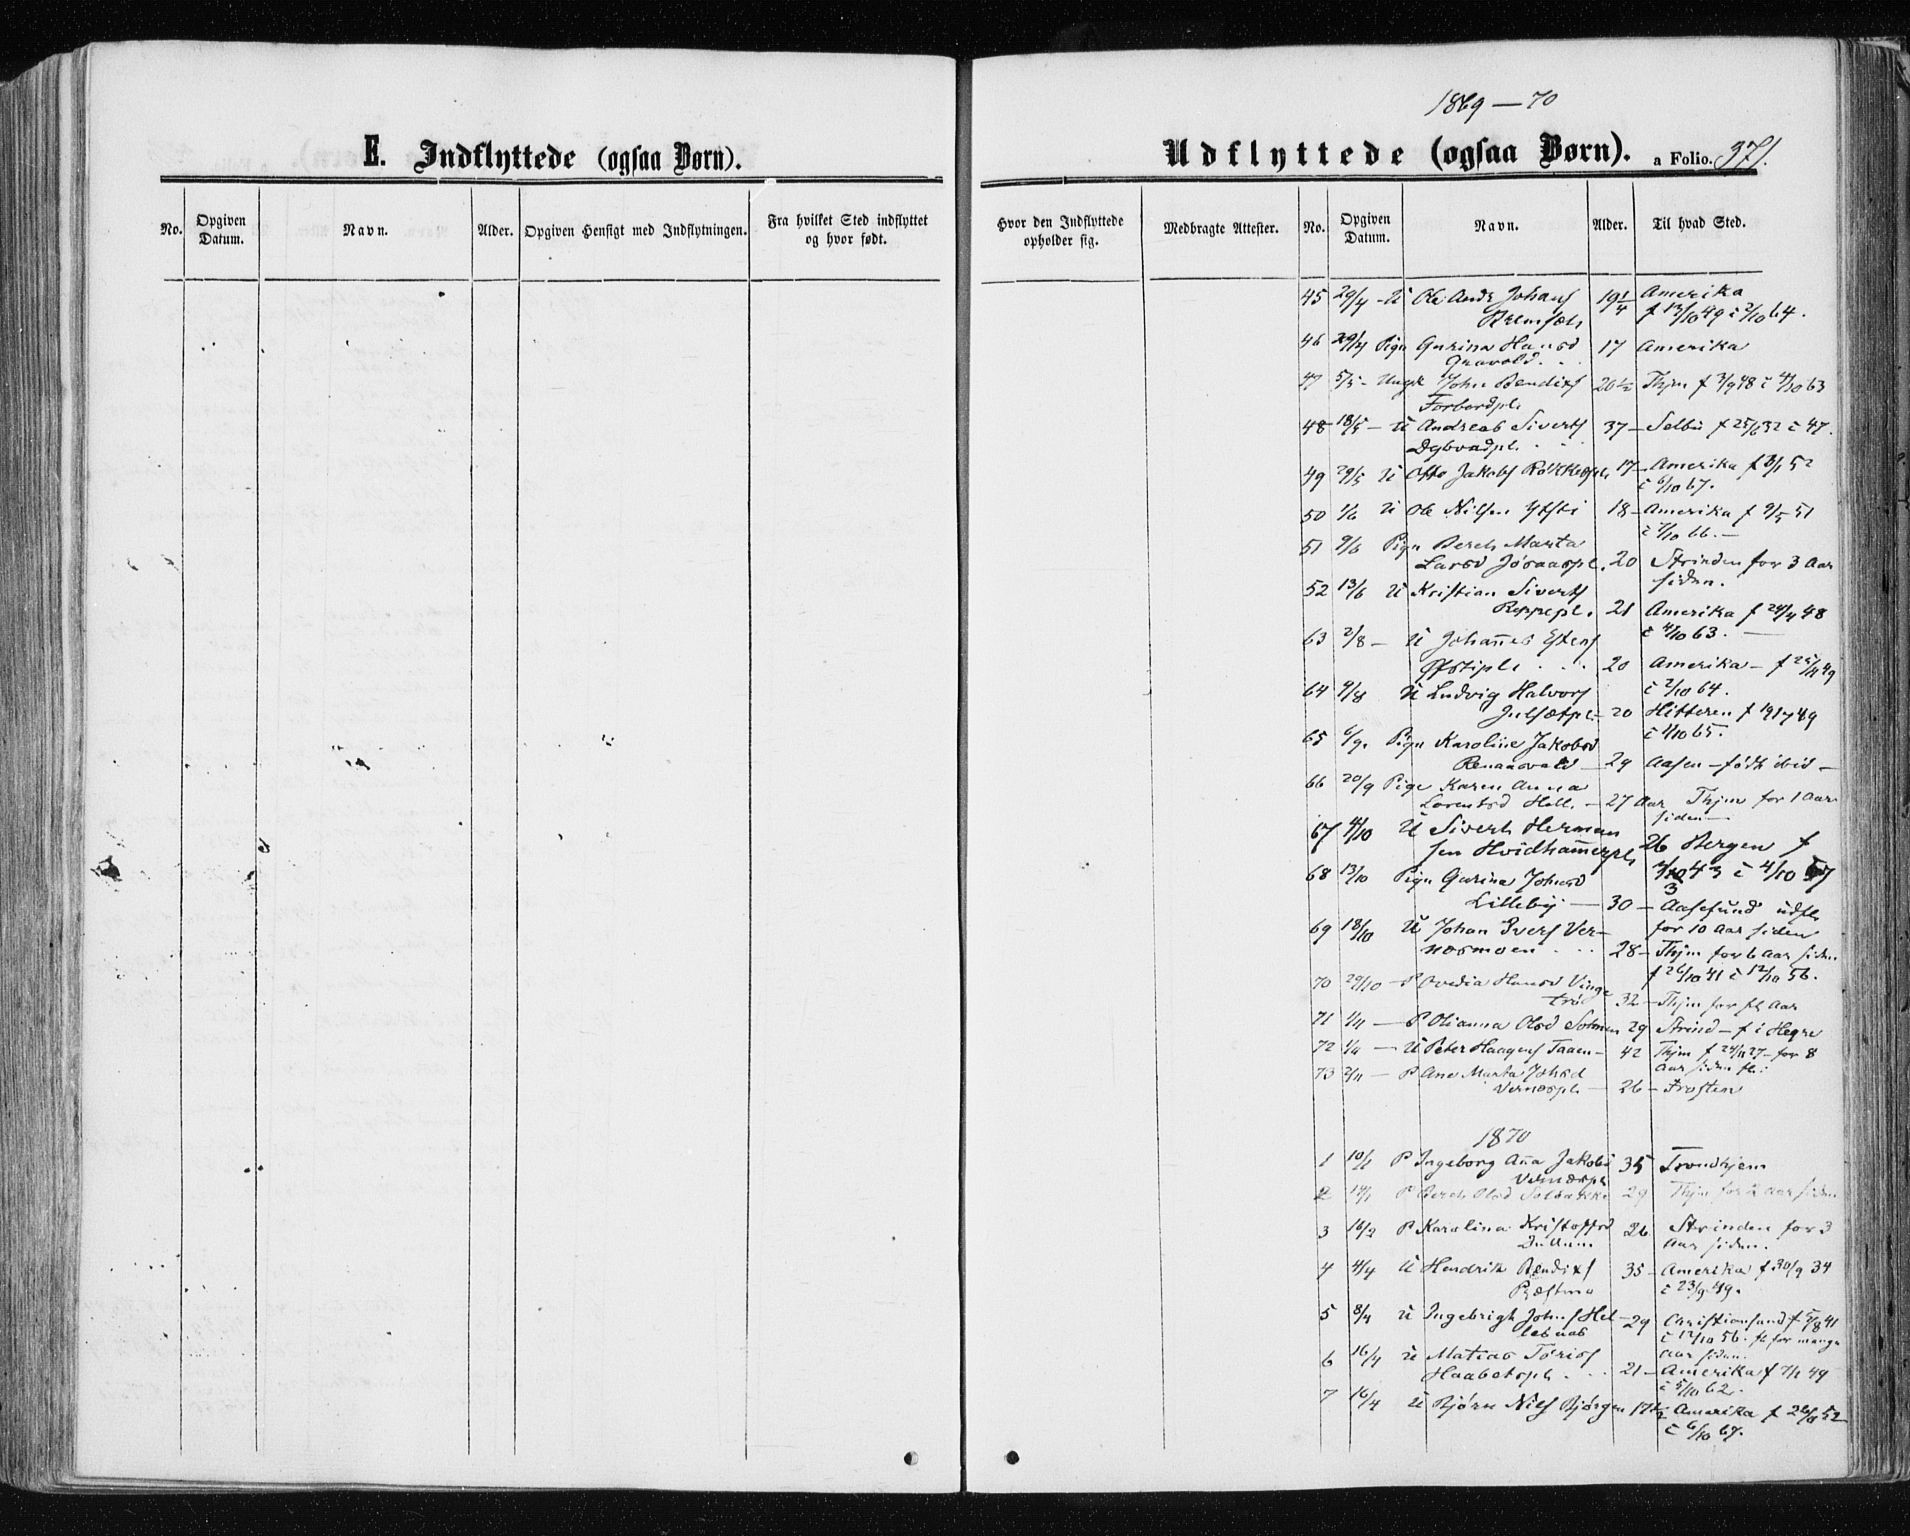 1869 — 70
E. Indflyttede (ogsaa Børn).
Udflyttede (ogsaa Børn). a Folio. 371.
No. Opgiven Datum. Navn. Alder. Opgiven Hensigt med Indflytningen. Fra hvilket Sted indflyttet og hvor født.
Hvor den Indflyttede opholder sig. Medbragte Attester. No. Opgiven Datum. Navn. Alder. Til hvad Sted.
45 29/4 - U Ole Andr Johans 19 1/4 Amerika
f 13/10 49 c 2/10 64.
46 29/4 Pige Gurina Hansd 17 Amerika
47 5/5 - Ungk John Bendixs 20 1/2 Thjm f 3/9 48 c 4/10 63
Forbordpl.
48 18/5 - U Andreas Siverts 37 - Selbu f 25/6 32 c 47.
Dybvadpl.
49 29/5 U Otto Jakobs 17 - Amerika f 3/1 52
c 6/10 67.
50 1/6 U Ole Nilsen Ytsti 18 - Amerika f 9/5 51
c 7/10 66. -
51 9/6 Pige Bereh Marta
Larsd Jøraaspl. 20 Strinden for 3 Aar
siden.
52 13/6 U Kristian Siverts
Reppepl. 21 Amerika f 24/4 48
c 4/10 63. -
63 2/8 - U Johañes Estens
Øfstipl. 20 Amerika - f 25/11 49
c 2/10 64.
64 9/8 U Ludvig Halvors
Julsetpl. - 20 Hitteren f 1917 49
c 1/10 65.
65 6/9. Pige Karoline Jakobsd
29 Aasen - født ibid -
66 20/9 Pige Karen Anna
Lorentsd Hell. - 27 Aar Thjm for 1 Aar
siden -
67 4/10 U Siverh Herman
sen Hvidham̃erpl 26 Bergen f
43 c 4/10 57
68 13/10 Pige Gurina Johnsd
Lilleby - 30 - Aasefund udfl.
for 10 Aar siden
69 18/10 U Johan Ivers Ver-
nesmoen 28 - Thjm for 6 Aar siden
f 26/10 41 c 12/10 56.
70 29/10 - P Ovedia Hansd Vinge
trø 32 - Thjm for fl Aar
71 1/11 - P Olianna Olsd 29 Strind - f i Hegre
72 1/11 - U Peter Haagens Taaen - 42 Thjm f 24/11 27 - for 8
Aar siden fl.
73 2/11 - P Ane Marta Johsd
Vernespl. - 26 - Frosten
1870
1 10/1 P Ingeborg Aña Jakobs 35 Trondhjem
Vernespl.
2 14/1 P Bereh Olsd 29 Thjm for 2 Aar siden
3 16/2 P Karolina Kristoffsd 26 Strinden for 3
Aar siden.
4 4/4 U Hendrik Bendixs 35 - Amerika f 30/9 34
Præstmo c 23/9 49.
5 8/4 U Ingebrigt Johns Hel - 29 Christiansund f 5/8 41
lesnes c 12/10 56. fl for mange
Aar siden.
6 16/4 U Matias Toris 21 - Amerika f 7/1 49
Haabetspl. c 5/10 62.
7 16/4 U Bjørn Nils Bjørgen 17 1/2 Amerika f 26/9 52
c 6/10 67.